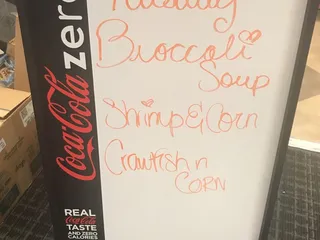 Tuesday
Broccoli
Soup
Shrimp & Corn
Crawfish n
CORN
Coca-Cola zero
REAL
Coca-Cola
TASTE
AND ZERO
CALORIES